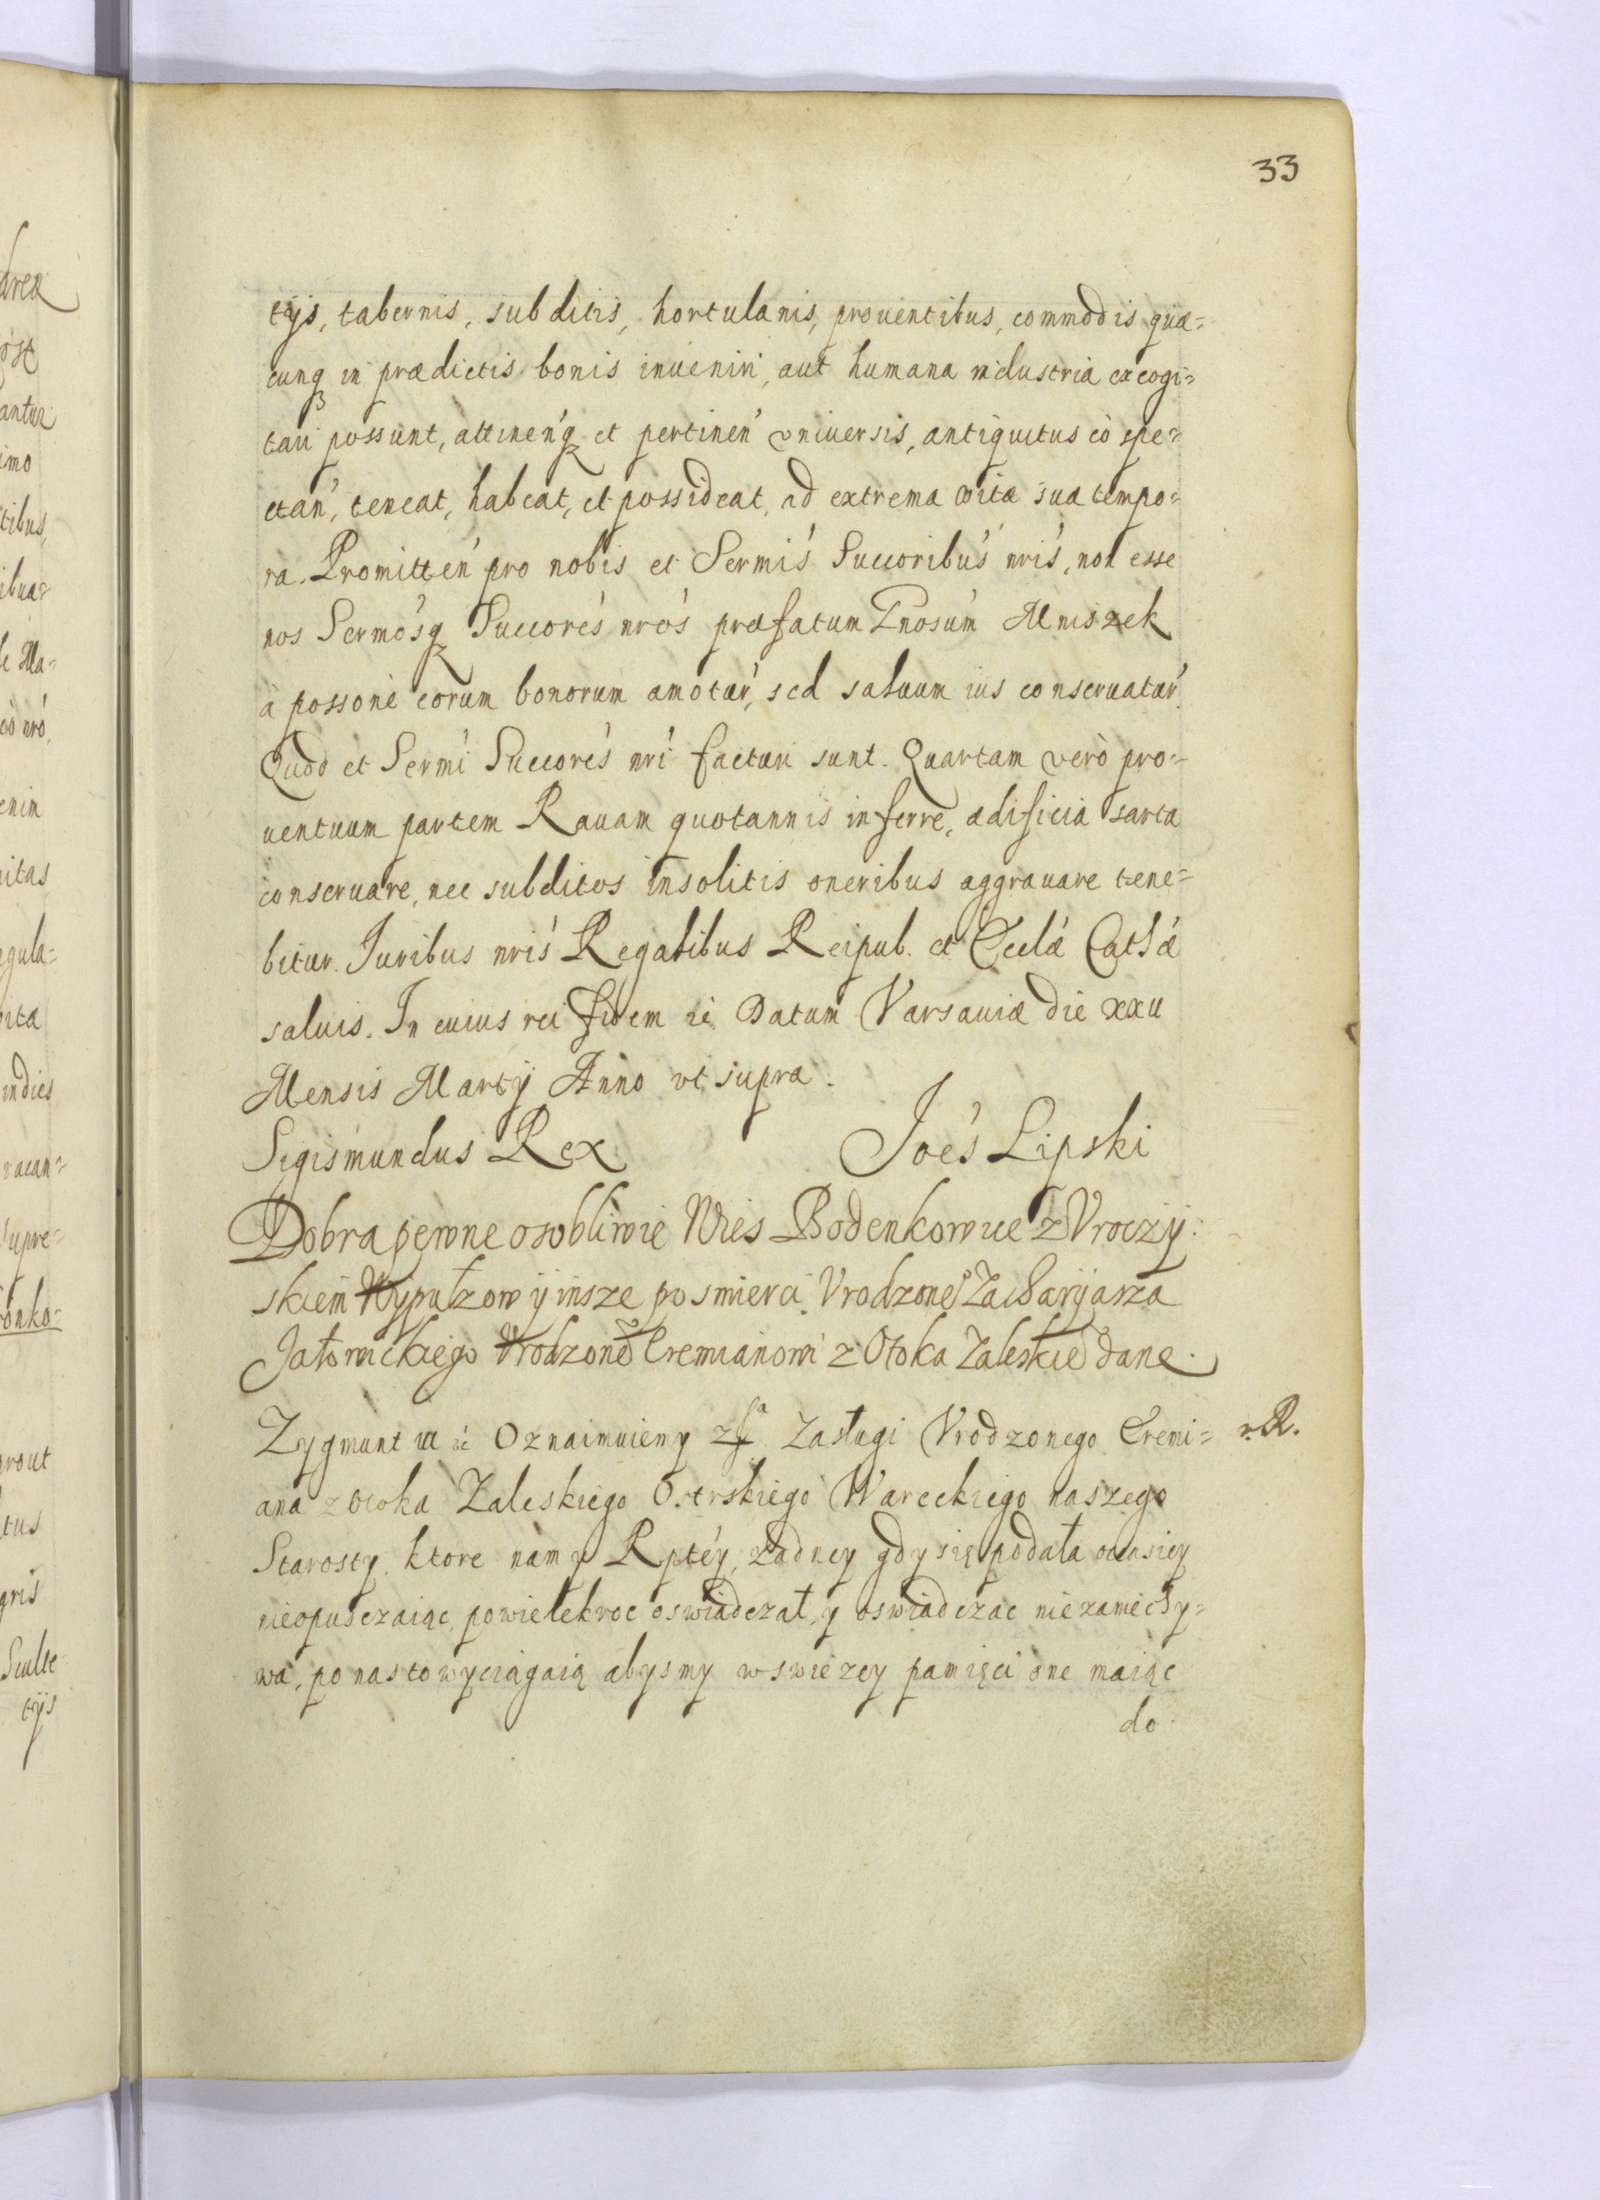 33
tijs, tabernis, subditis, hortulanis, prouentibus, commodis quæ=
cunq in prædictis bonis inueniri, aut humana industria excogi=
tari possunt, attinen'q et pertinen' vniuersis, antiquitus eò spe=
ctan', teneat, habeat, et possideat, ad extrema vitæ suæ tempo=
ra. Promitten' pro nobis et Sermis' Succoribus' nris', non esse
nos Sermos'q Succores' nros' præfatum Gnosum' Mniszek
à possone eorum bonorum amotur', sed saluum ius conseruatur'.
Quod et Sermi' Succores' nri' facturi sunt. Quartam verò pro=
uentuum partem Rauam quotannis inferre, ædificia sarta
conseruare, nec subditos insolitis oneribus aggrauare tene=
bitur. Iuribus nris' Regalibus Reipub. et Ecclæ' Cathæ'
saluis. In cuius rei fidem &c. Datum Varsauiæ die xxv
Mensis Martij Anno vt supra.
Sigismundus Rex Joes' Lipski
Dobra pewne osobliwie Wies Bodenkowice z Vroczij:
skiem Wyputzow ij insze po smierci Vrodzone° Zacharijasza
Jatowickiego Vrodzone° Cremianowi z Otoka Zaleskie° dane.
Zygmunt III &c Oznaimuiemy &ca Zasługi Vrodzonego Cremi= r.R.
ana z Otoka Zaleskiego Ostrskiego Wareckiego naszego
Starosty, ktore nam y Rptey, żadney gdy się podała occasiey
nieopusczaiąc, powielekroc oswiadczał, y oswiadczac niezaniechy=
wa, po nas to wyciągaią abysmy w swiezey pamięci one maiąc
do